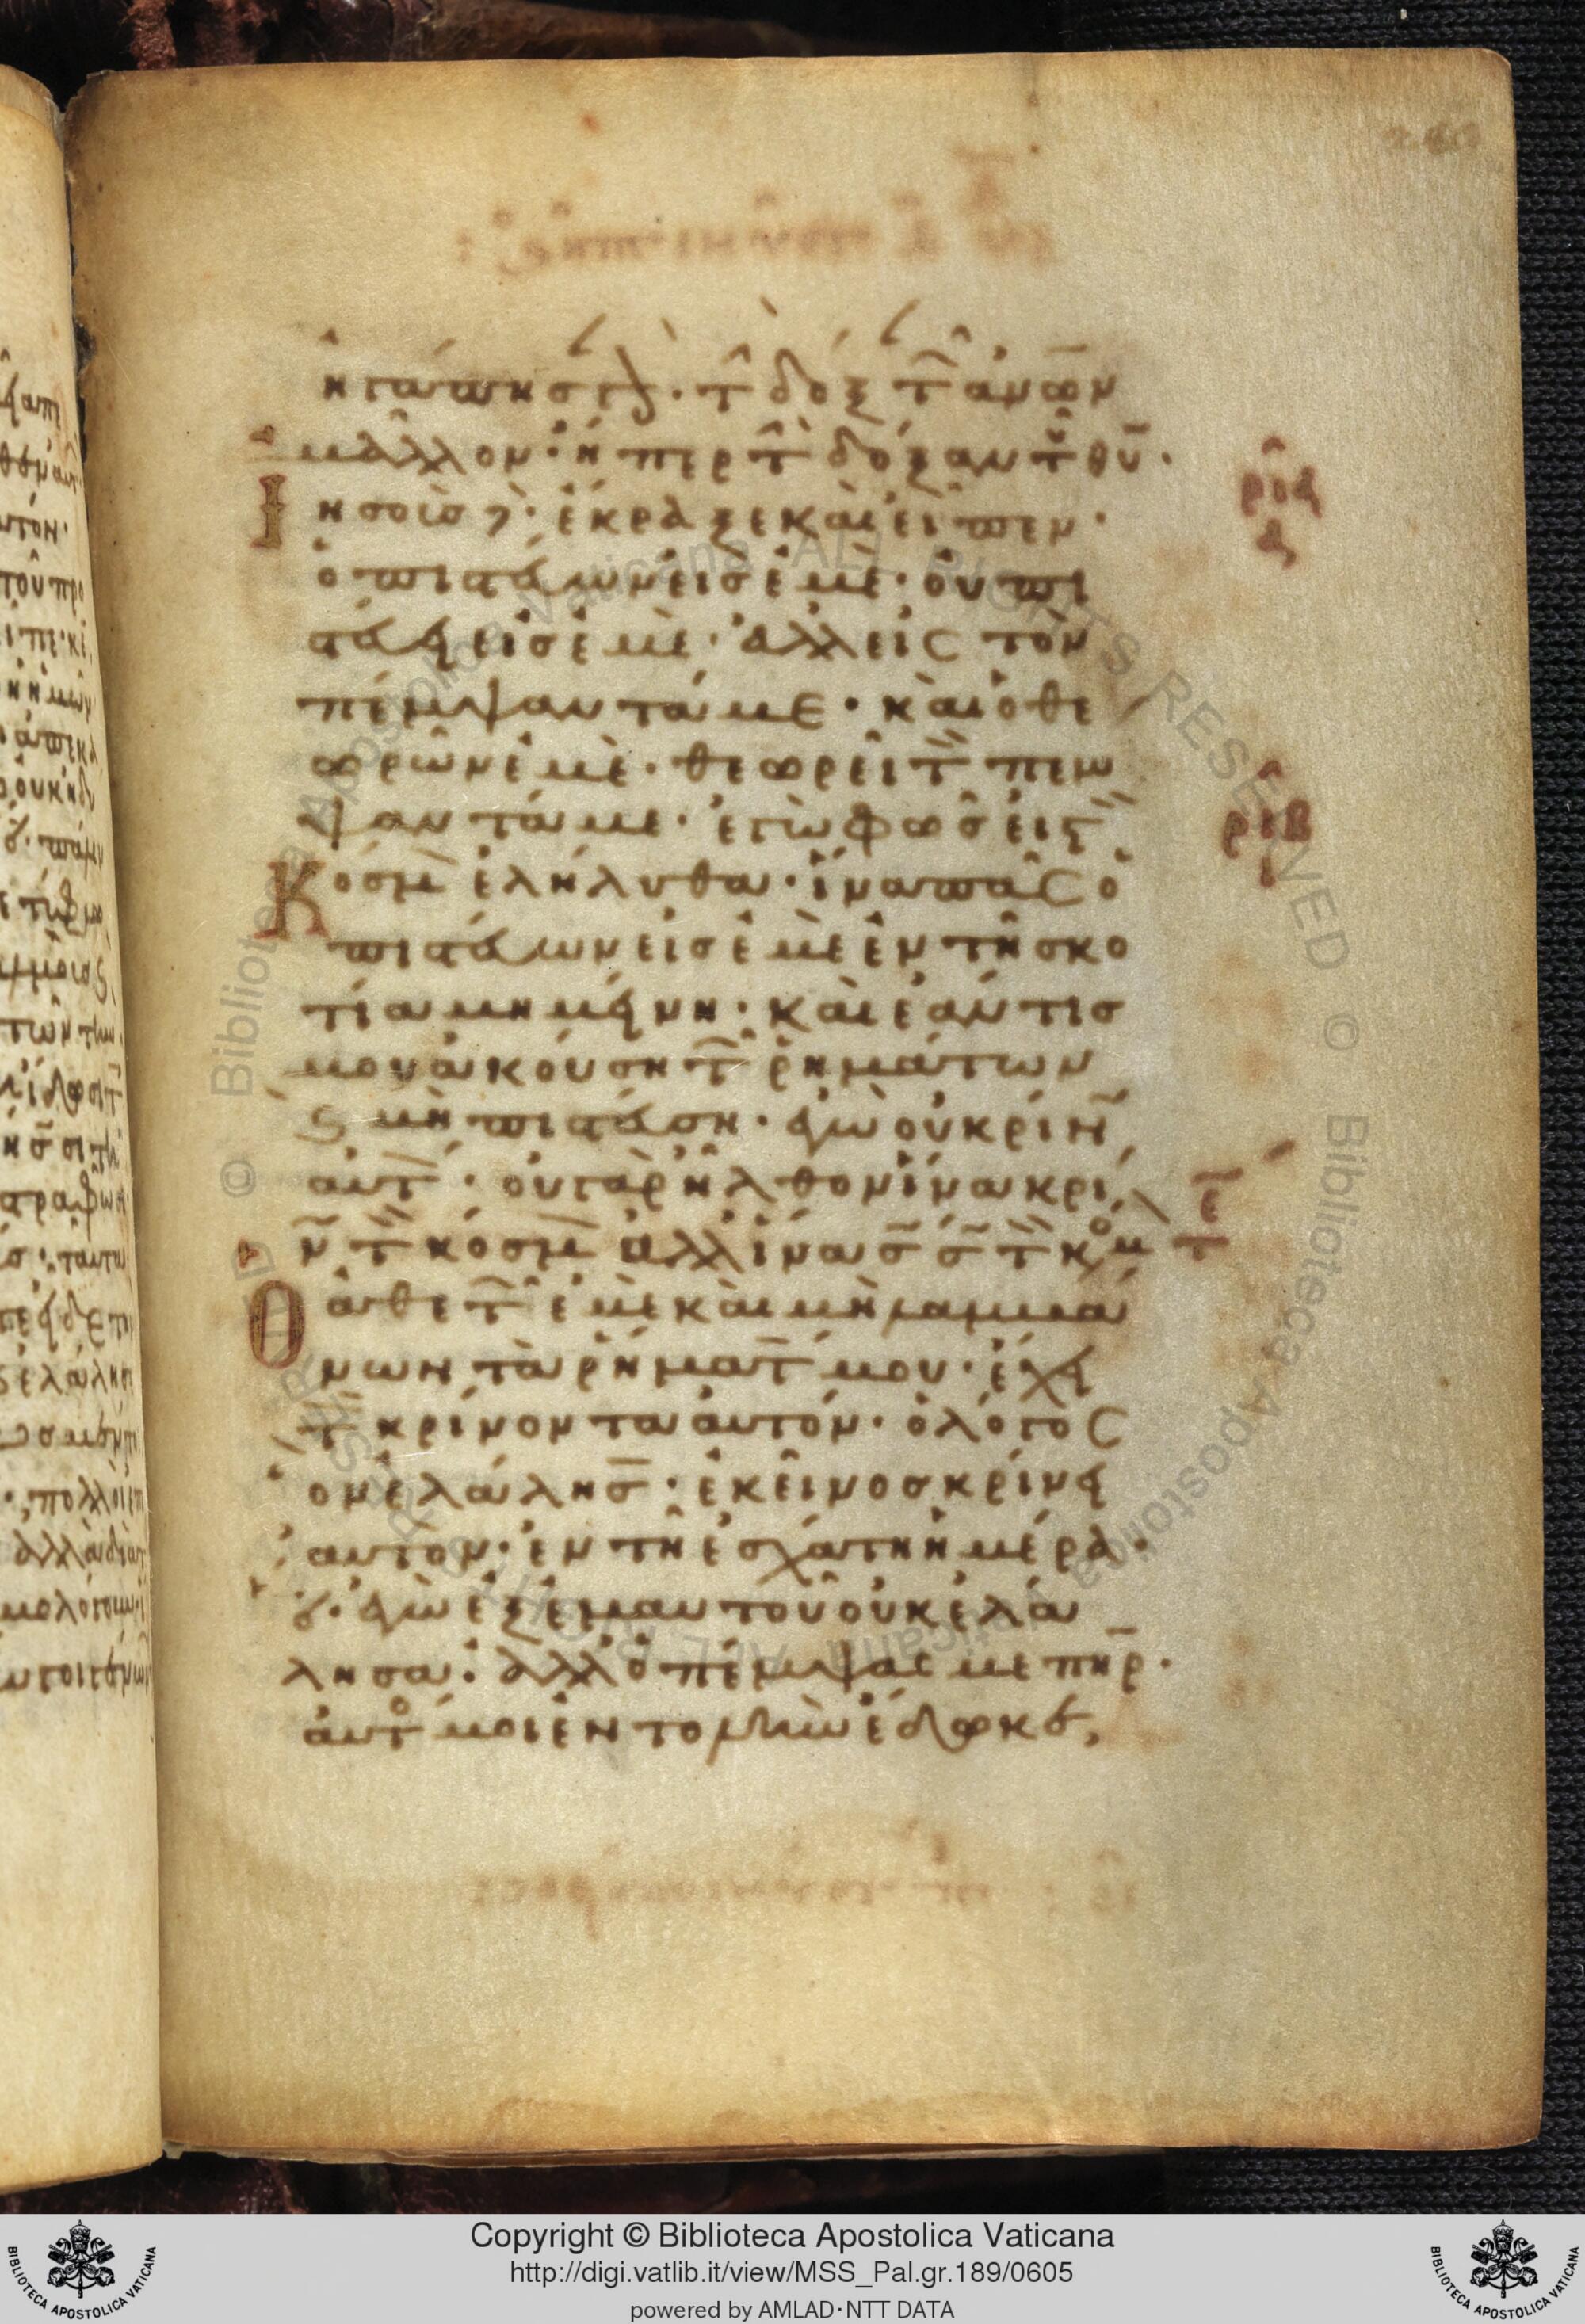 ἠγάπησ γὰρ· τ δόξ τ ἀνων
μᾶλλον· ἤπερ τ δόξαν τ θυ·
Ἰησοῦς δὲ· ἔκραξε καὶ εἶπεν·
ὁ πιστεύων εἰς ἐμὲ· οὐ πι
στεύει εἰς ἐμὲ· ἀλλ εἰς τὸν
πέμψαντά με· καὶ ὁ θε
ωρῶν ἐμὲ· θεωρεῖ τ πεμ
ψαντά με· ἐγὼ φῶς εἰς τ
Κόσμ ἐλήλυθα· ἵνα πᾶς ὁ
πιστεύων εἰς ἐμὲ ἐν τῆ σκο
τία μὴ μείνη· καὶ ἐάν τις
μου ἀκούση τ ῥημάτων
ϗ μὴ πιστεύση· ἐγὼ οὐ κρίν
αὐτ· οὐ γὰρ ἦλθον ἵνα κρί
ν τ κόσμ ἀλλ ἵνα σ σ τ κόμ
Ὁ ἀθετ ἐμὲ καὶ μὴ λαμβά
νων τὰ ῥήματ μου· ἔχει
τ κρίνοντα αὐτόν· ὁ λόγος
ὃν ἐλάλησ· ἐκεῖνος κρινεῖ
αὐτὸν· ἐν τῆ ἐσχάτη ἡμέρα·
ἐγὼ ἐξ ἐμαυτοῦ οὐκ ἐλά
λησα· ἀλλ ὁ πέμψας με πηρ·
αὐτ μοι ἐντολὴν ἔδωκεν,
ριβ
ι
Copyright © Biblioteca Apostolica Vaticana
http://digi.vatlib.it/view/MSS_Pal.gr.189/0605
powered by AMLAD·NTT DATA
BIBLIOTECA APOSTOLICA VATICANA
BIBLIOTECA APOSTOLICA VATICANA